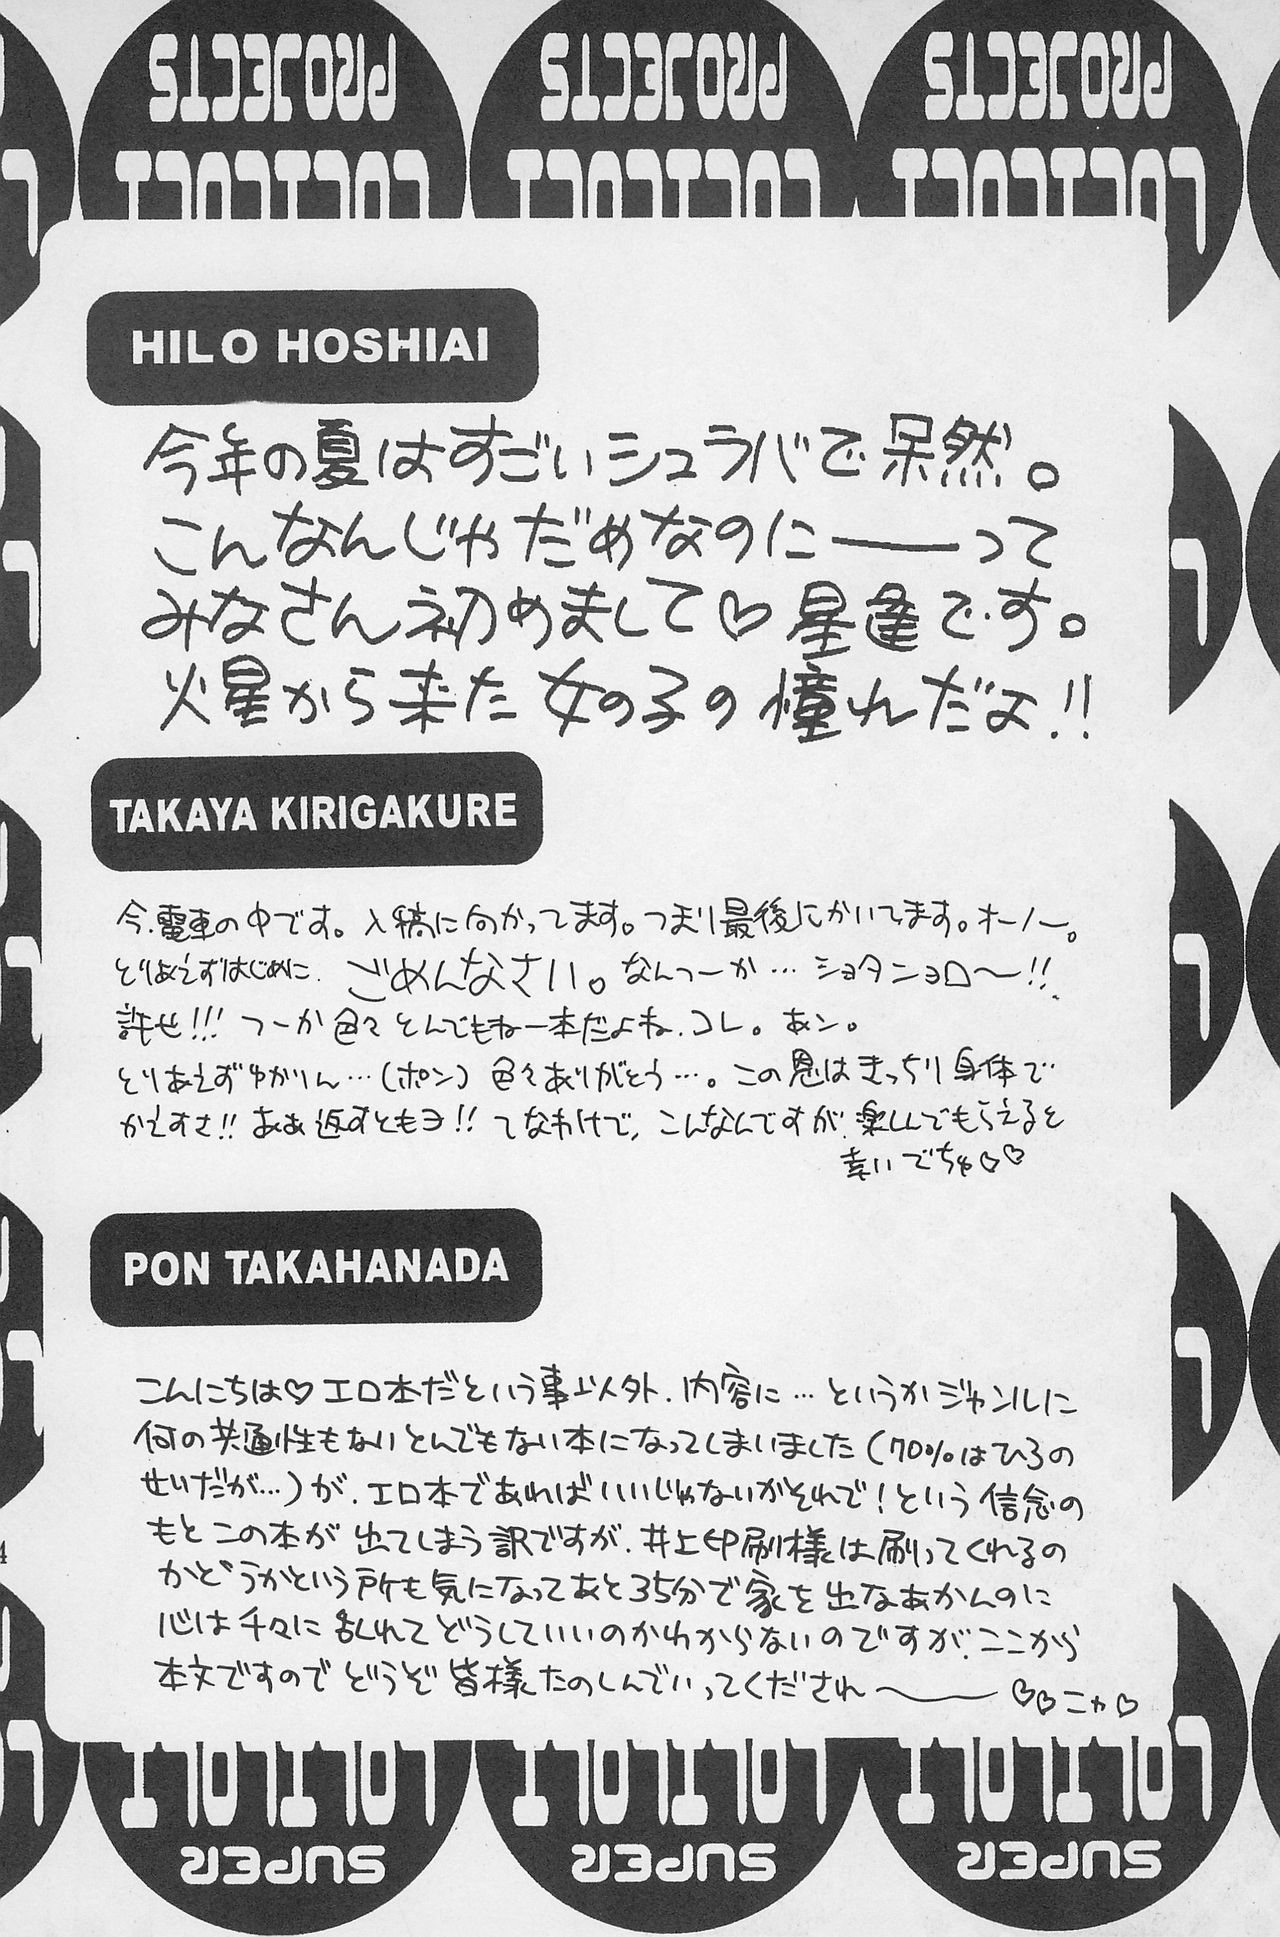 PROJECTS PROJECTS PROJECTS
LOLILOLI LOLILOLI LOLILOLI
HILO HOSHIAI
今年の夏はすごいシュラバで呆然。
こんなんじゃだめなのに――って
みなさん初めまして♡星逢です。
火星から来た女の子の憧れだよ!!
TAKAYA KIRIGAKURE
今、電車の中です。入稿に向かってます。つまり最後にかいてます。オーノー。
とりあえずはじめに、ごめんなさい。なんつーか…ショタンョロ〜!!
許せ!!! つーか色々とんでもねー本だよね、コレ。あン。
とりあえずゆかりん…(ポン)色々ありがとう…。この恩はきっちり身体で
かえすさ!! ああ返すともヨ!! てなわけで、こんなんですが、楽しんでもらえると
幸いでちゅ♡♡
PON TAKAHANADA
こんにちは♡エロ本だという事以外、内容に…というかジャンルに
何の共通性もないとんでもない本になってしまいました(70%はひろの
せいだが…)が、エロ本であればいいじゃないかそれで!という信念の
もとこの本が出てしまう訳ですが、井上印刷様は刷ってくれるの
かどうかという所も気になってあと35分で家を出なあかんのに
心は千々に乱れてどうしていいのかわからないのですが、ここから
本文ですのでどうぞ皆様たのしんでいってくだされ〜♡♡ニャ♡
4
LOLILOLI LOLILOLI LOLILOLI
SUPER SUPER SUPER